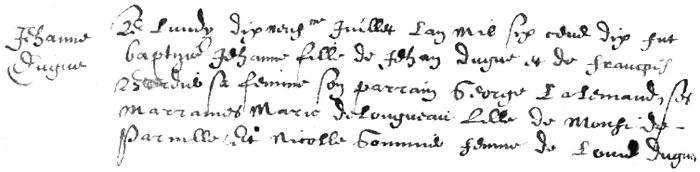 Jehanne
Dugue
Le Lundy dix neuf me Juillet Lan mil six cens dix fut
baptisée Jehanne fille de Jehan dugue et de françoise
sa femme son parrain George Lalemand, ses
marraines Marie delongueau fille de Monsr de
et Nicolle femme de Louis dugue